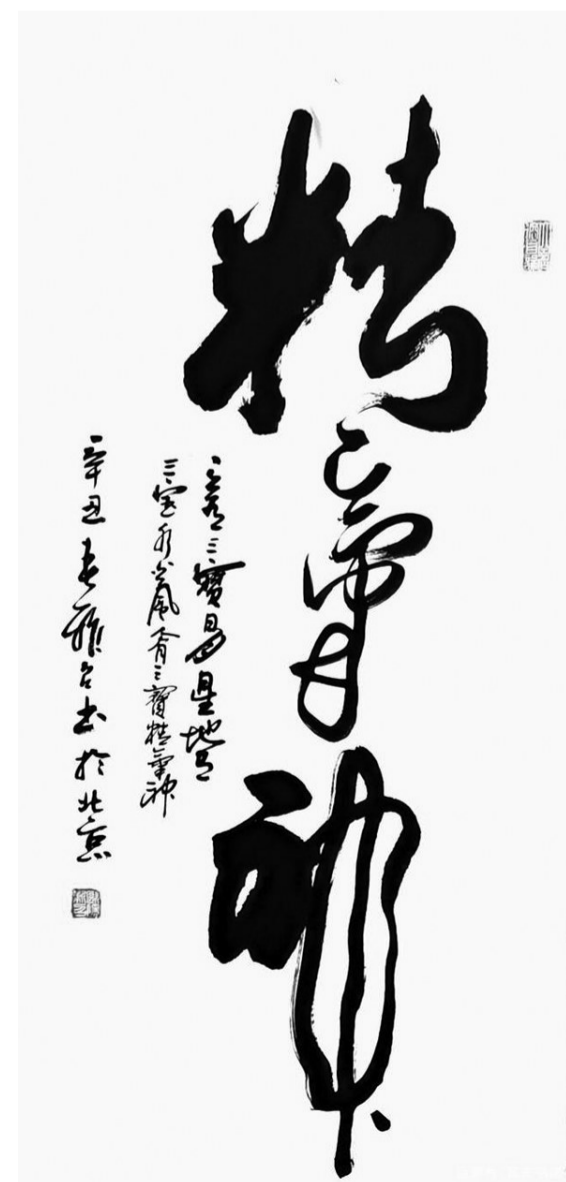 精氣神
天有三寶日月星地有
三宝水火風人有三寶精氣神
辛丑春雅台书於北京